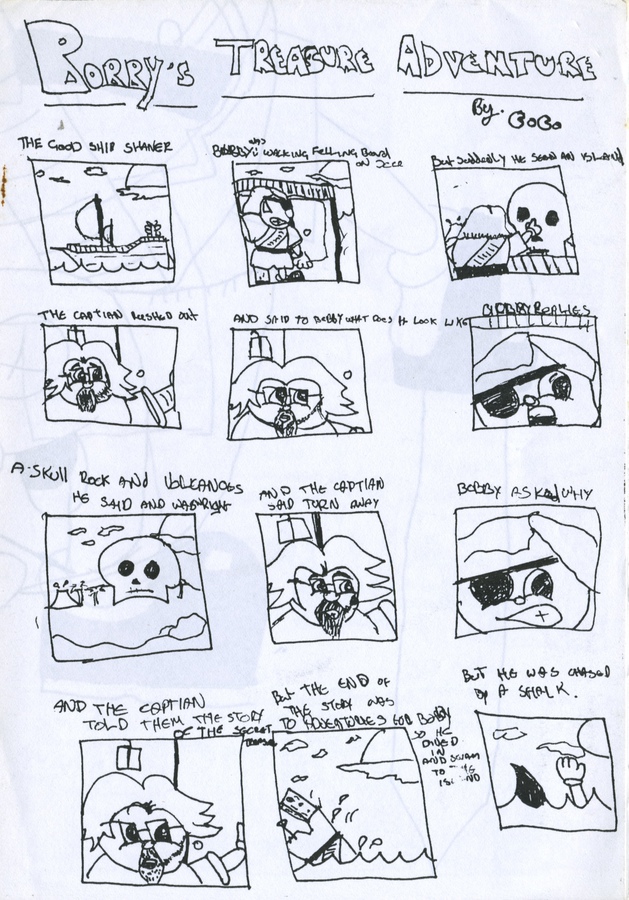 BORRY'S TREASURE ADVENTURE
By. CoCo
THE GOOD SHIP SHANER
BOBBY WAS WALKING FELLING BORD
ON DECK
BUT SUDDENLY HE SEEN AN ISLAND
THE CAPTIAN RUSHED OUT
AND SAID TO BOBBY WHAT DOES IT LOOK LIKE
BOBBY REPLIES
A SKULL ROCK AND VOLCANOES
HE SAID AND WAS RIGHT
AND THE CAPTIAN
SAID TURN AWAY
BOBBY ASKED WHY
AND THE CAPTIAN
TOLD THEM THE STORY
OF THE SECRET
TREASURE
BUT THE END OF
THE STORY WAS
TO ADVENTUROUS FOR BOBBY
SO HE
DIVED
IN
AND SWAM
TO THE
ISLAND
BUT HE WAS CHASED
BY A SHARK.